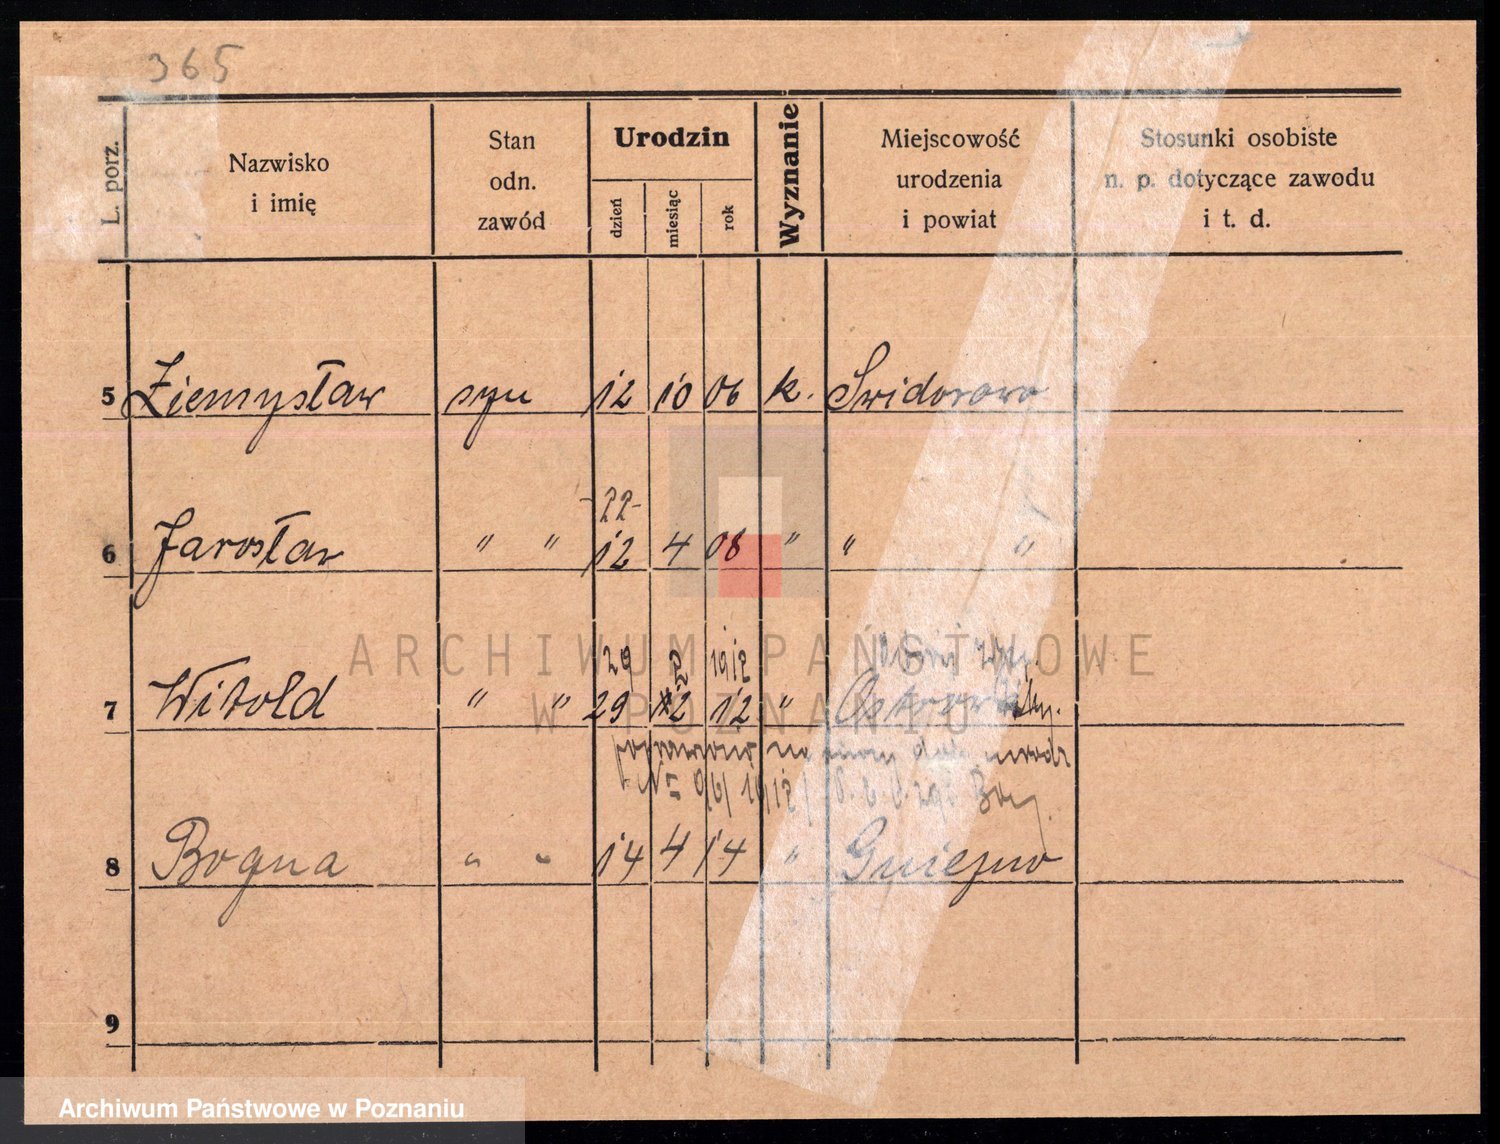 365
L. porz.
Nazwisko
i imię
Stan
odn.
zawód
Urodzin
dzień
miesiąc
rok
Wyznanie
Miejscowość
urodzenia
i powiat
Stosunki osobiste
n. p. dotyczące zawodu
i t. d.
5 Ziemysław syn 12 10 06 k. Swidorowo
-22-
6 Jarosław " " 12 4 08 " " "
29 1912
7 Witold " " 29 12 "
8 Bogna " " 14 4 14 " Gniezno
9
ARCHIWUM PAŃSTWOWE
W POZNANIU
Archiwum Państwowe w Poznaniu